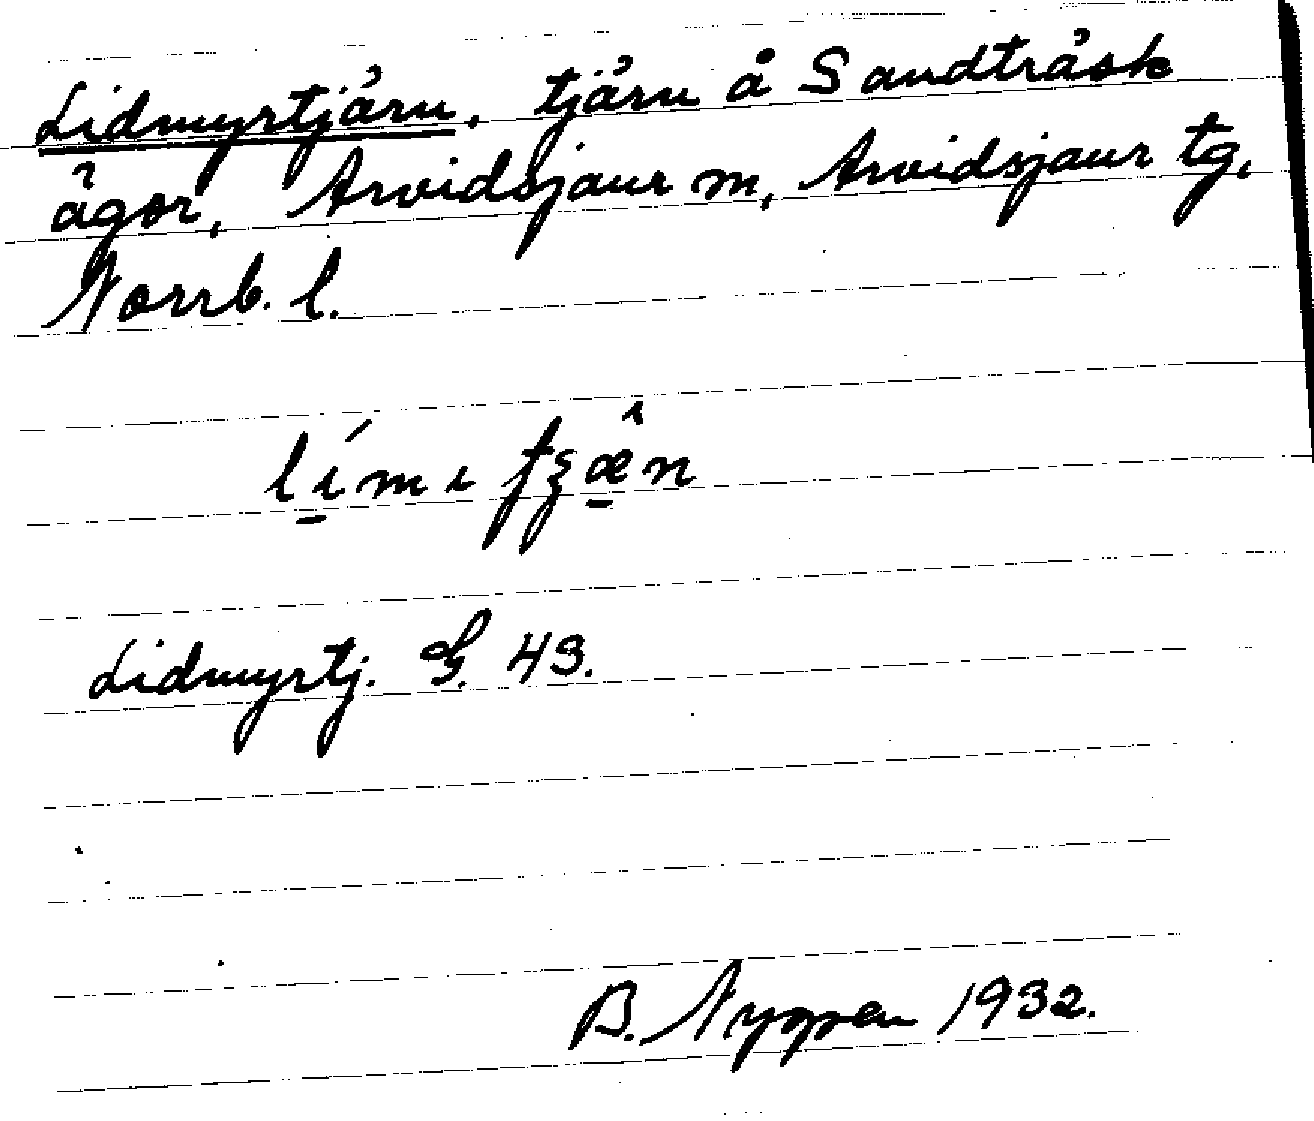 Lidmyrtjärn, tjärn å Sandträsk
ägor, Arvidsjaur m, Arvidsjaur tg,
Norrb. l.
Lidmyrtj. G. 43.
B. Nyppen 1932.